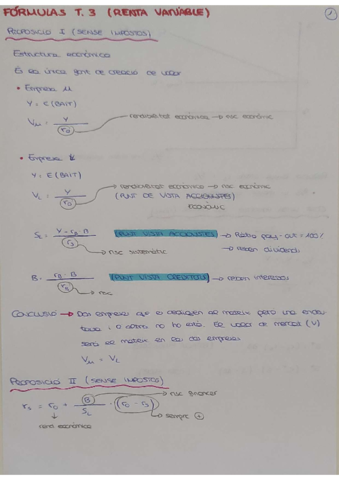 FÓRMULAS T.3 (RENTA VARIABLE)
1
PROPOSICIÓ I (SENSE IMPOSTOS)
Estructura econòmica
És la única font de creació de valor
• Empresa u
Y = E(BAIT)
Vu = Y / r0 → rendabilitat econòmica → risc econòmic
• Empresa L
Y = E(BAIT)
VL = Y / r0 → rendabilitat econòmica → risc econòmic
(PUNT DE VISTA ACCIONISTES)
ECONÒMIC
SL = Y - rB · B / rs (PUNT VISTA ACCIONISTES) → Ràtio pay-out = 100%
→ risc sistemàtic
→ reben dividends
B = rB · B / rB (PUNT VISTA CREDITORS) → reben interessos
→ risc
CONCLUSIÓ → Dos empreses que es dediquen al mateix però una endeu
tada i l'altra no ho està. El valor de mercat (V)
serà el mateix en les dos empreses
Vu = VL
PROPOSICIÓ II (SENSE IMPOSTOS)
rs = r0 + B / SL · (r0 - rB) → risc financer
→ sempre +
rend econòmica